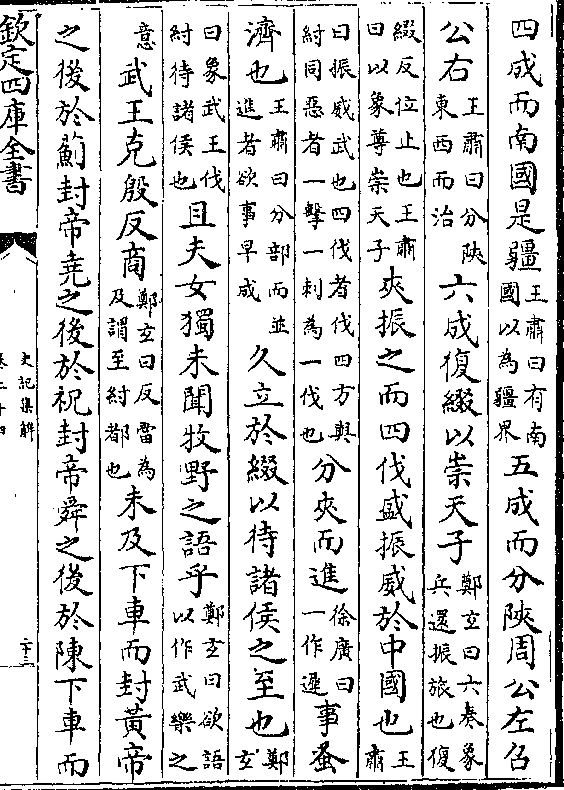 四成而南國是疆王肅曰有南國以為疆界五成而分陝周公左召
公右王肅曰分陝東西而治六成復綴以崇天子鄭玄曰六奏象兵還振旅也復
綴反位止也王肅曰以象尊崇天子夾振之而四伐盛振威於中國也王肅
曰振威武也四伐者伐四方與紂同惡者一擊一刺為一伐也分夾而進徐廣曰一作遲事蚤
濟也王肅曰分部而並進者欲事早成久立於綴以待諸侯之至也鄭玄
曰象武王伐紂待諸侯也且夫女獨未聞牧野之語乎鄭玄曰欲語以作武樂之
意武王克殷反商鄭玄曰反當為及謂至紂都也未及下車而封黃帝
之後於薊封帝堯之後於祝封帝舜之後於陳下車而
欽定四庫全書
史記集解
卷二十四
二十三